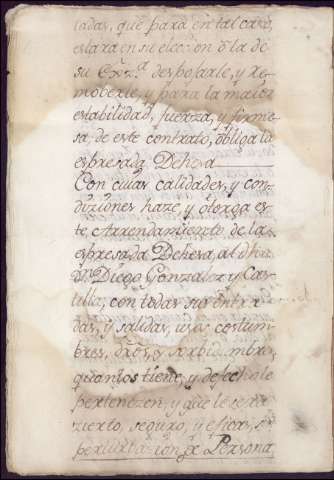 ladas, que para en tal caso,
estara en su eleccion ò la de
su Exz.ª desposarle, y re-
moberle, y para la maior
estabilidad, fuerza, y firme-
za, de este contrato, obliga la
espresada Dehesa
Con cuias calidades, y con-
diziones haze y otorga es-
te Arrendamiento de la
espresada Dehesa, al dho
Dn. Diego Gonzalez y Cas-
tilla, con todas sus entra-
das, y salidas, usos costum-
bres, dros, y serbidumbres
quantos tiene, y de fecho le
pertenezen, y que le sera
zierto, seguro, y
Persona